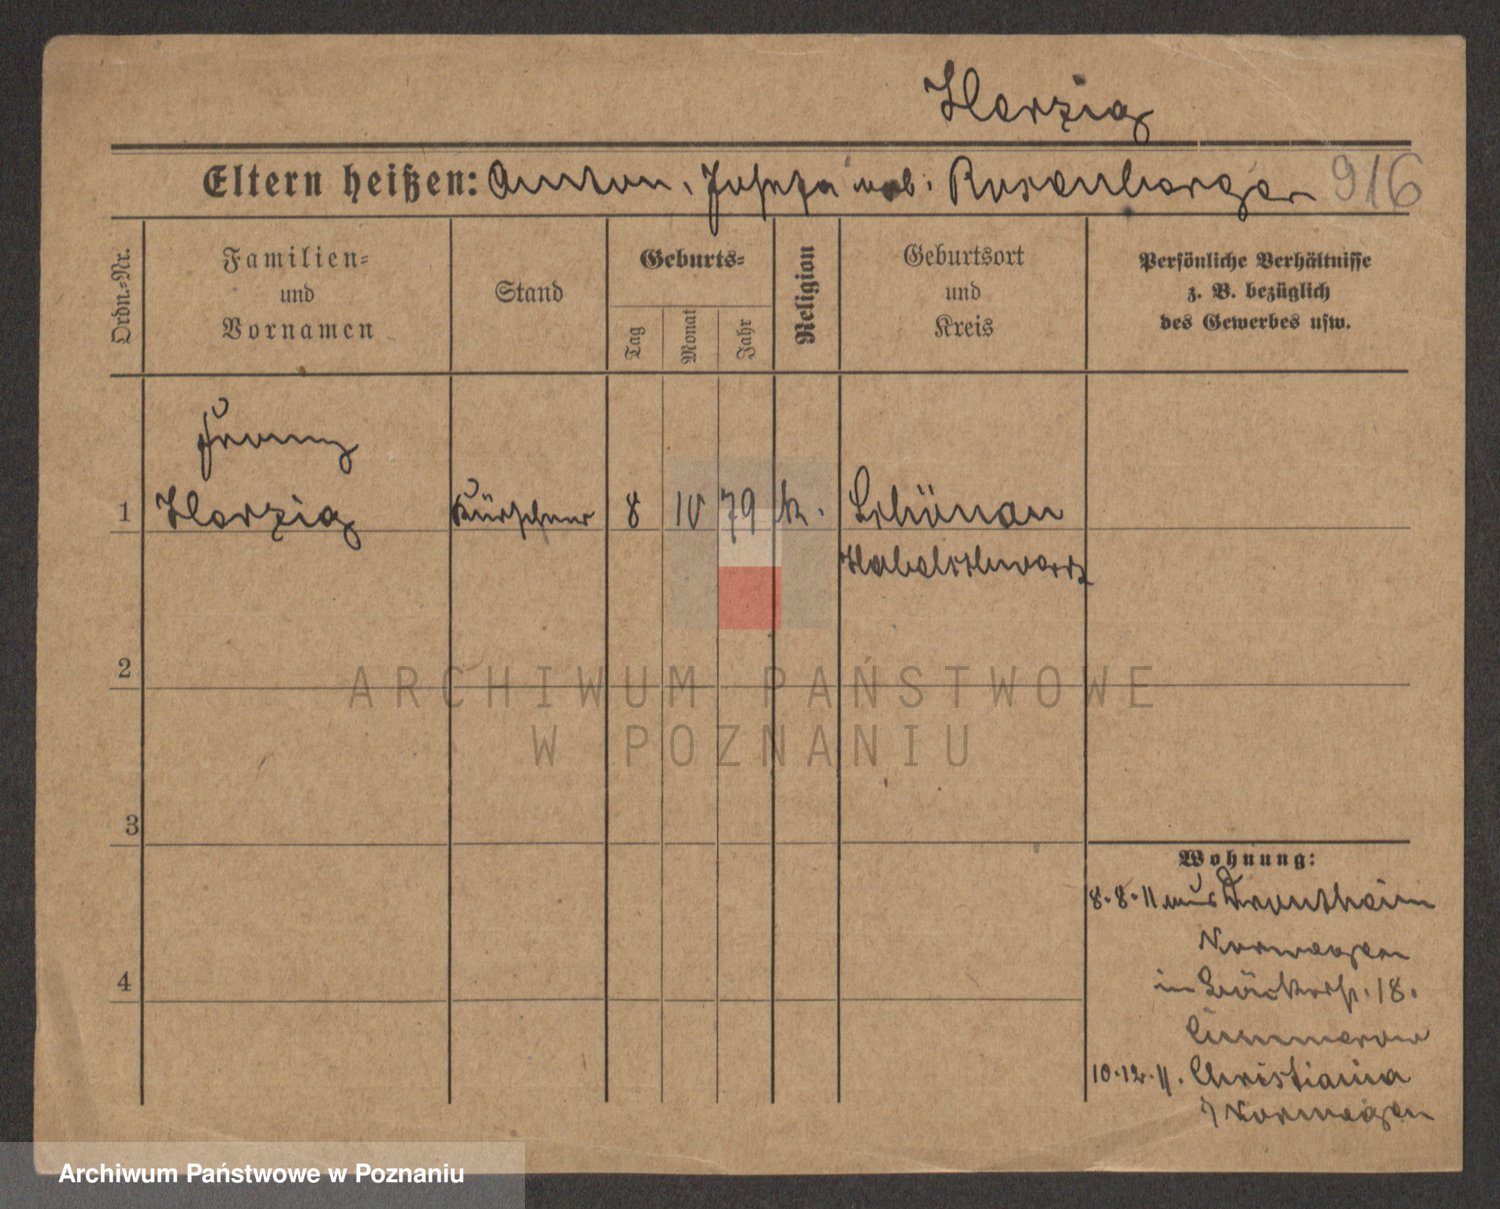 Herzig
Eltern heißen: Anton, Josefa geb. Rosenberger 916
Ordn.=Nr.
Familien=
und
Vornamen
Stand
Geburts=
Tag
Monat
Jahr
Religion
Geburtsort
und
Kreis
Persönliche Verhältnisse
z. B. bezüglich
des Gewerbes usw.
Franz
1 Herzig Kürschner 8 10 79 k. Schönau
Habelschwerdt
2
ARCHIWUM PAŃSTWOWE
W POZNANIU
3
4
Wohnung:
8.8.11 aus Drontheim
Norwegen
in Bäckerst. 18.
Cummerow
10.12.11. Christiania
Norwegen
Archiwum Państwowe w Poznaniu